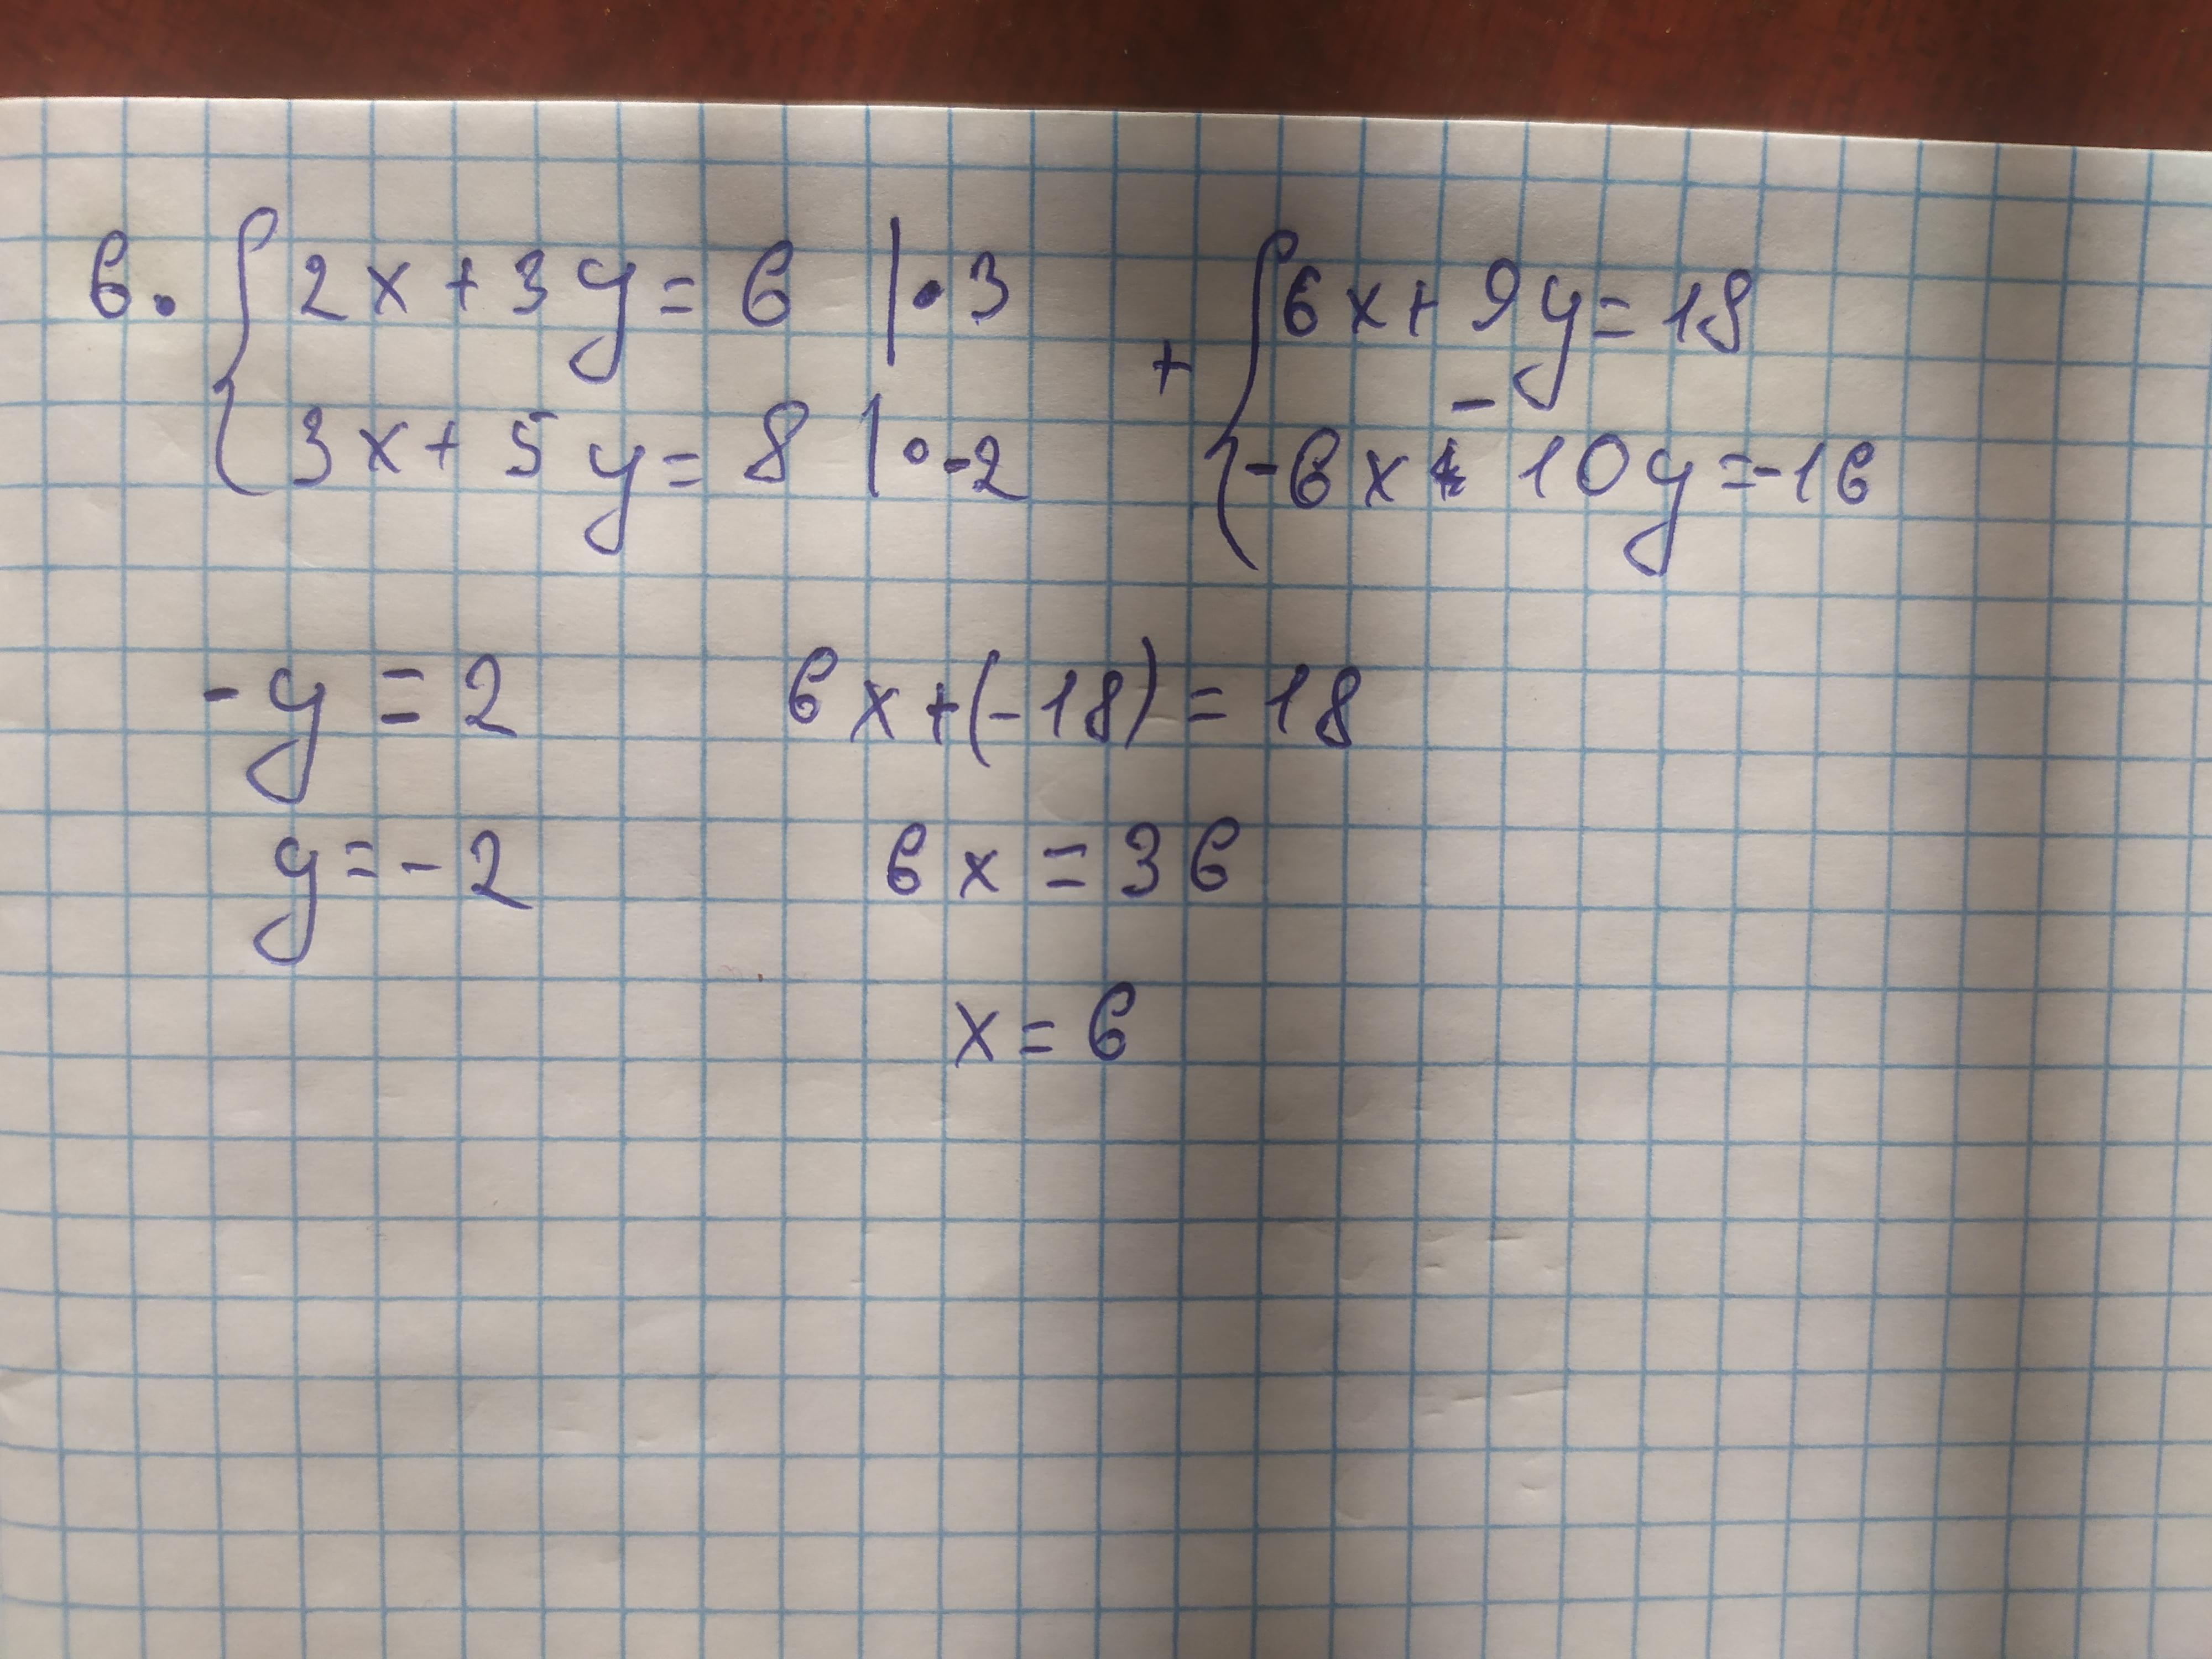 6. { 2x + 3y = 6 | · 3
3x + 5y = 8 | · -2
+ { 6x + 9y = 18
-6x - 10y = -16
-y = 2
y = -2
6x + (-18) = 18
6x = 36
x = 6